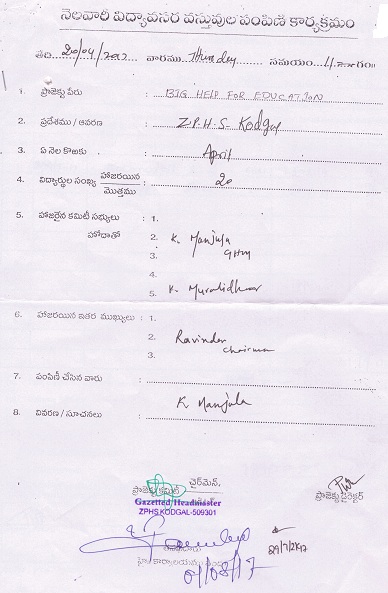 నెలవారి విద్యావసర వస్తువుల పంపిణి కార్యక్రమం
తేది 20/04/ వారము Thursday సమయం
1. ప్రాజెక్టు పేరు : BIG HELP FOR EDUCATION
2. ప్రదేశము / ఆవరణ : Z.P.H.S- Kodgal
3. ఏ నెల కొఱకు : April
4. విద్యార్థుల సంఖ్య హాజరయిన / మొత్తము : 20
5. హాజరైన కమిటి సభ్యులు : 1.
హోదాతో 2. K. Manjula
3. GHM
4.
5. K. Muralidhar
6. హాజరయిన ఇతర ముఖ్యులు : 1.
2. Ravinder
3. Chairman
7. పంపిణి చేసిన వారు :
K Manjula
8. వివరణ / సూచనలు :
చైర్మెన్,
ప్రాజెక్టు కమిటి
ప్రాజెక్టు డైరెక్టర్
Gazetted Headmaster
ZPHS.KODGAL-509301
29/7/2017
01/08/17